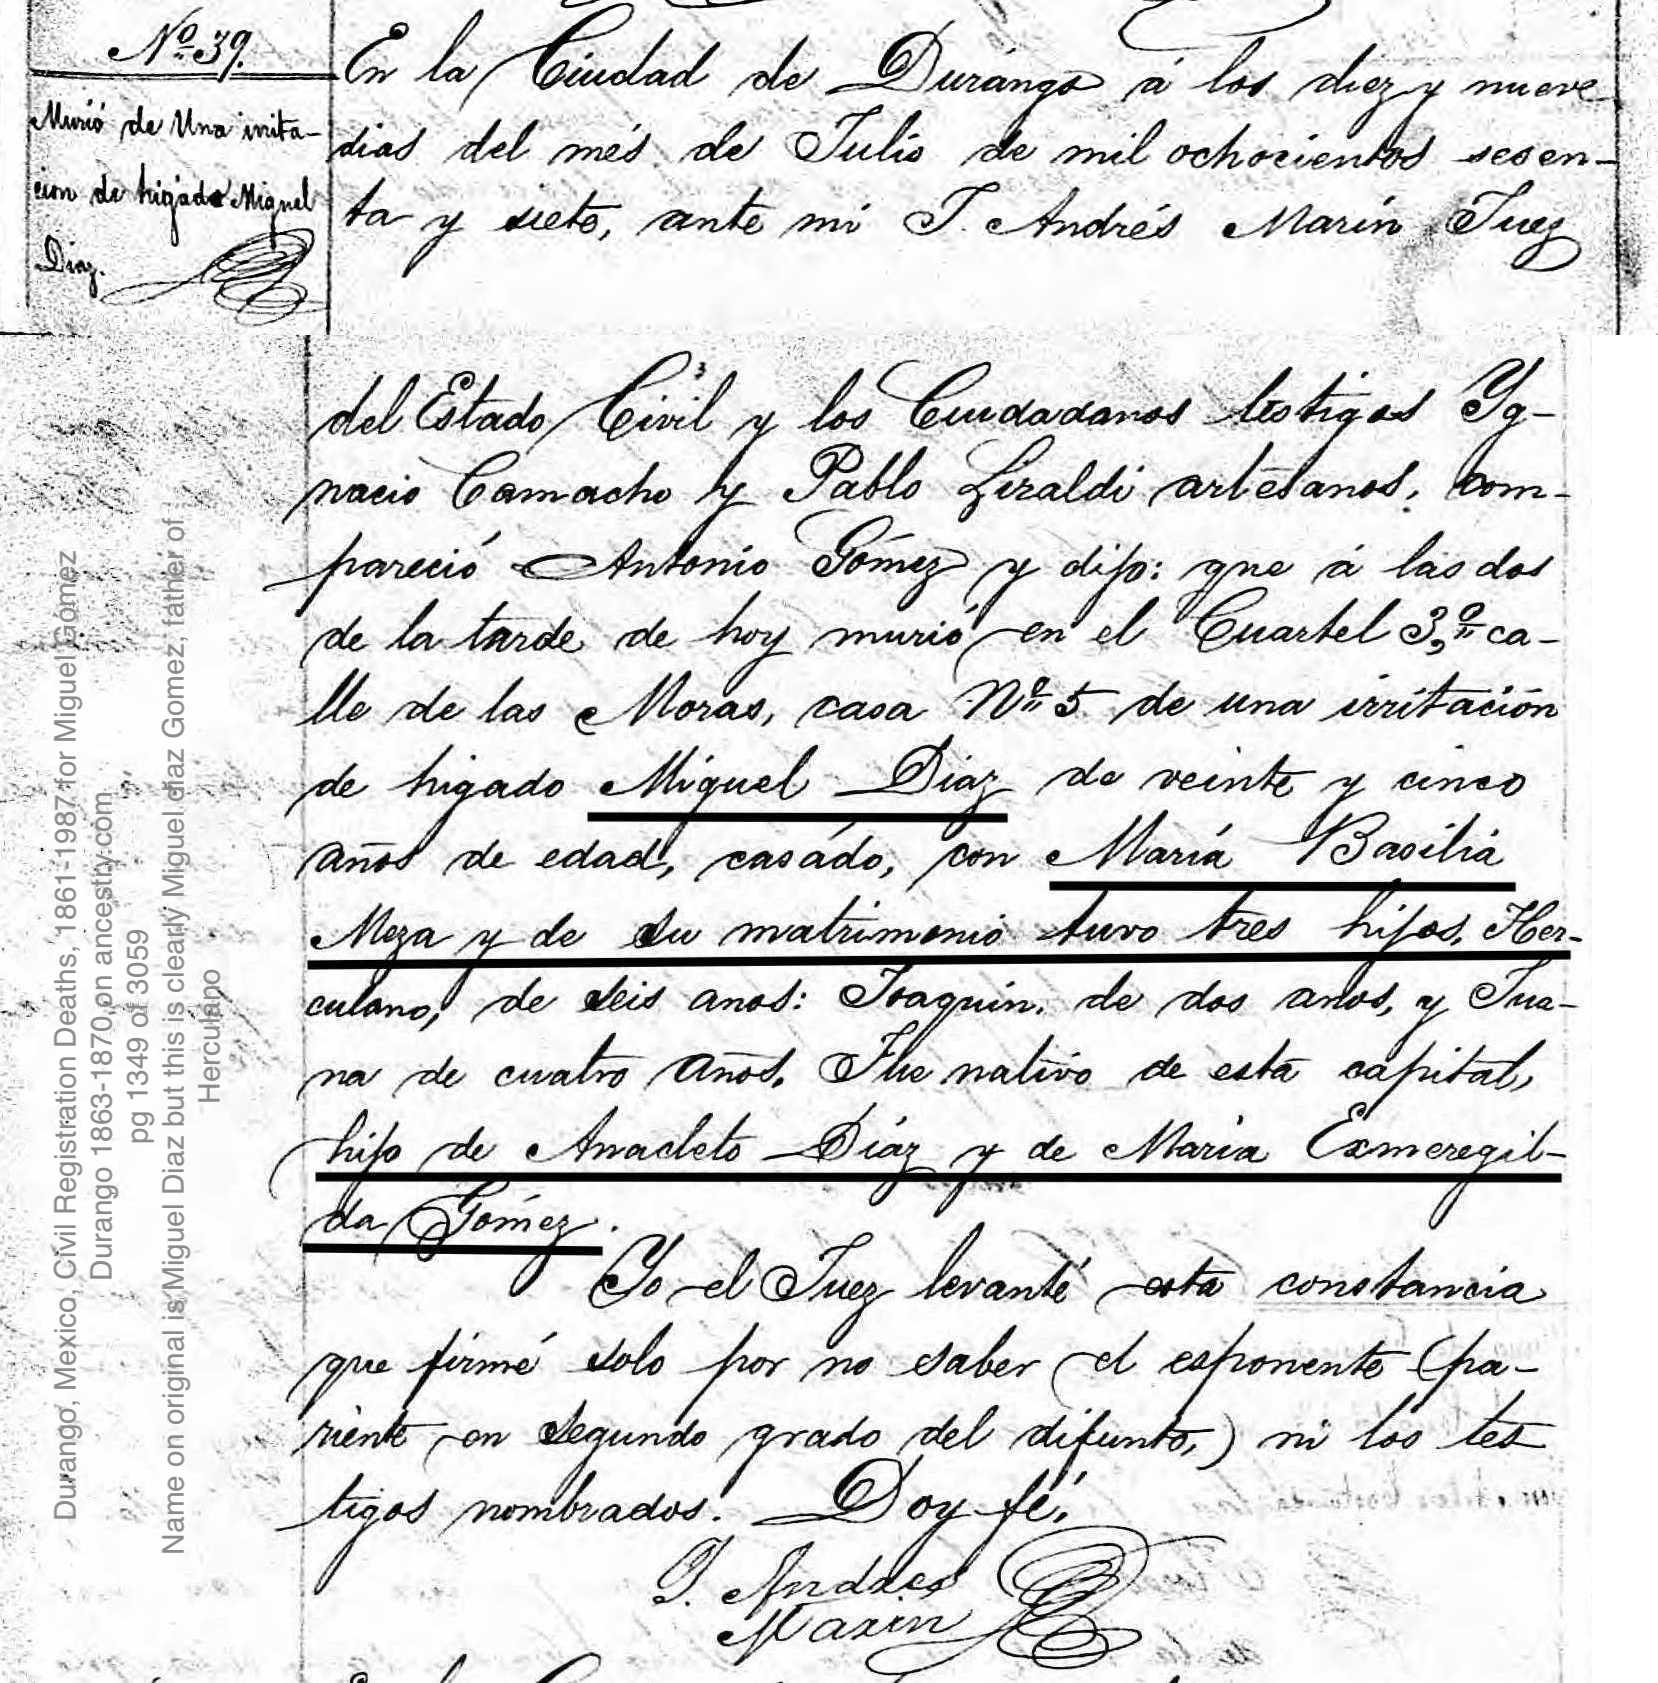 Nº 39.
Murió de Una irrita-
cion de higado Miguel
Diaz.
En la Ciudad de Durango á los diez y nueve
dias del més de Julio de mil ochocientos sesen-
ta y siete, ante mi J. Andrés Marin Juez
del Estado Civil y los Ciudadanos testigos Yg-
nacio Camacho y Pablo Liraldi artesanos, com-
pareció Antonio Gómez y dijo: que á las dos
de la tarde de hoy murió en el Cuartel 3,º ca-
lle de las Moras, casa Nº 5 de una irritación
de higado Miguel Diaz de veinte y cinco
años de edad, casádo, con María Basilia
Meza y de su matrimonio tuvo tres hijos, Her-
culano, de seis anos: Joaquin, de dos años, y Jua-
na de cuatro años. Fue nativo de esta capital,
hijo de Anacleto Díaz y de Maria Exmeregil-
da Gómez.
Yo el Juez levanté esta constancia
que firmé solo por no saber el esponente (pa-
riente en segundo grado del difunto,) ni los tes
tigos nombrados. Doy fé.
J. Andres
Marin
Durango, Mexico, Civil Registration Deaths, 1861-1987 for Miguel Gomez
Durango 1863-1870, on ancestry.com
pg 1349 of 3059
Name on original is Miguel Diaz but this is clearly Miguel diaz Gomez, father of
Herculano